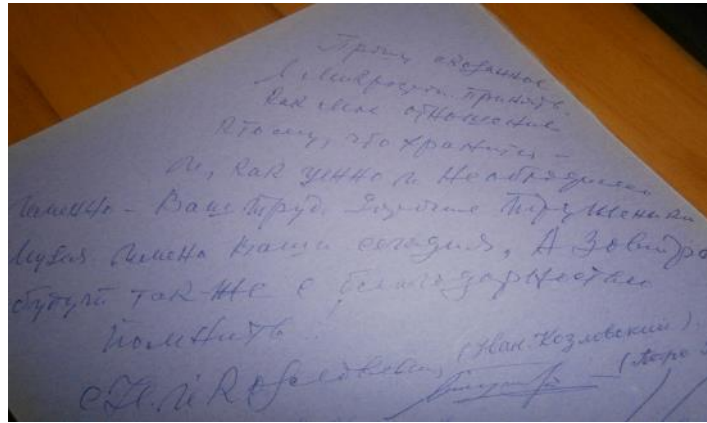 Прошу сказанное
и милости принять
как мое отношение
к тому, что хранится –
и, как ценно и необходимо
именно – Ваш труд. Труженики
музея имена ваши сегодня, А завтра
будут так-же с благодарностью
помнить
(Иван Козловский).